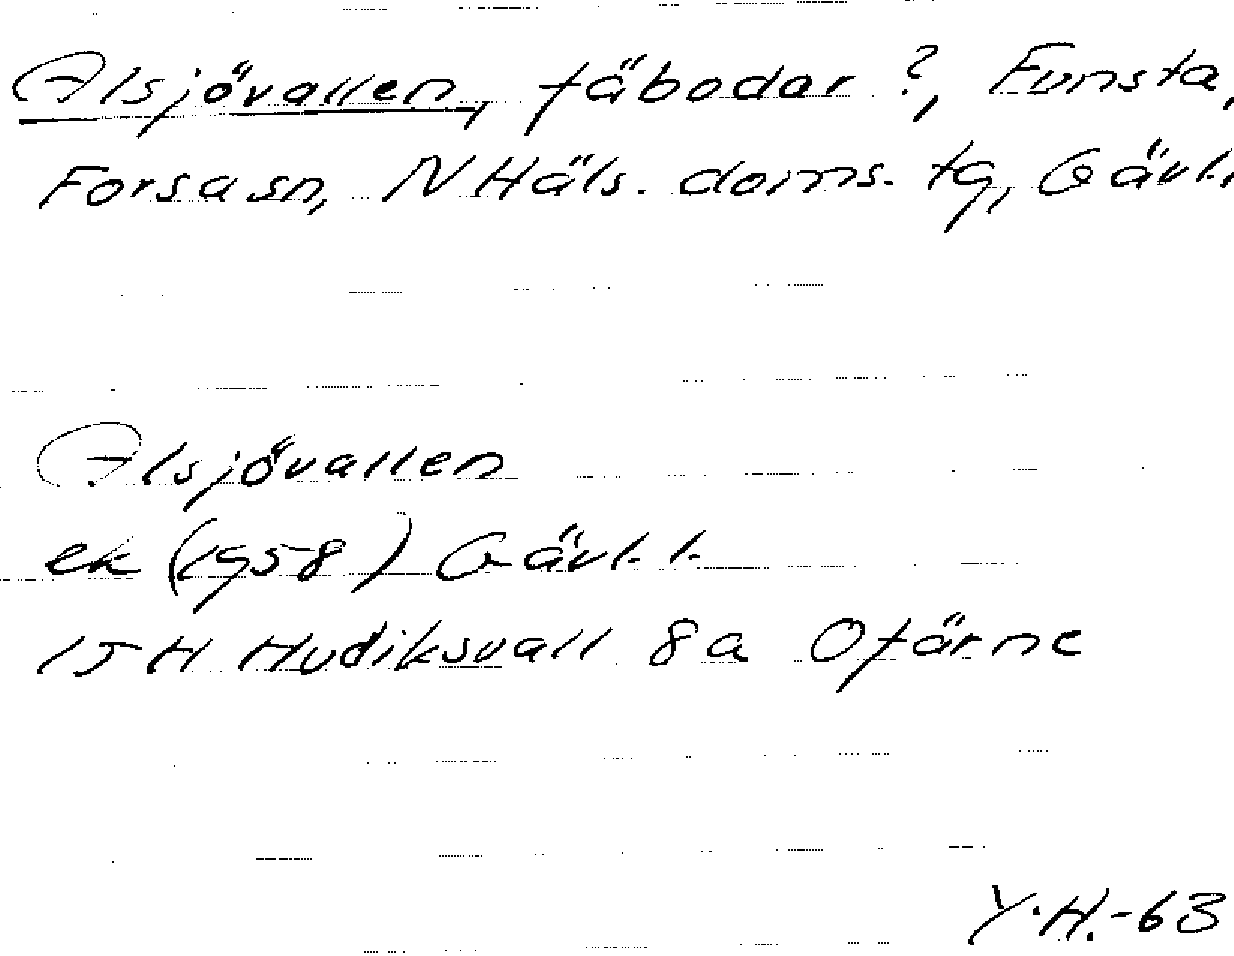 Alsjövallen, fäbodar ?, Funsta,
Forsa sn, N Häls. doms. tg, Gävl.
Alsjövallen
ek (1958) Gävl. l.
15H Hudiksvall 8a Ofärne
Y.H.-63